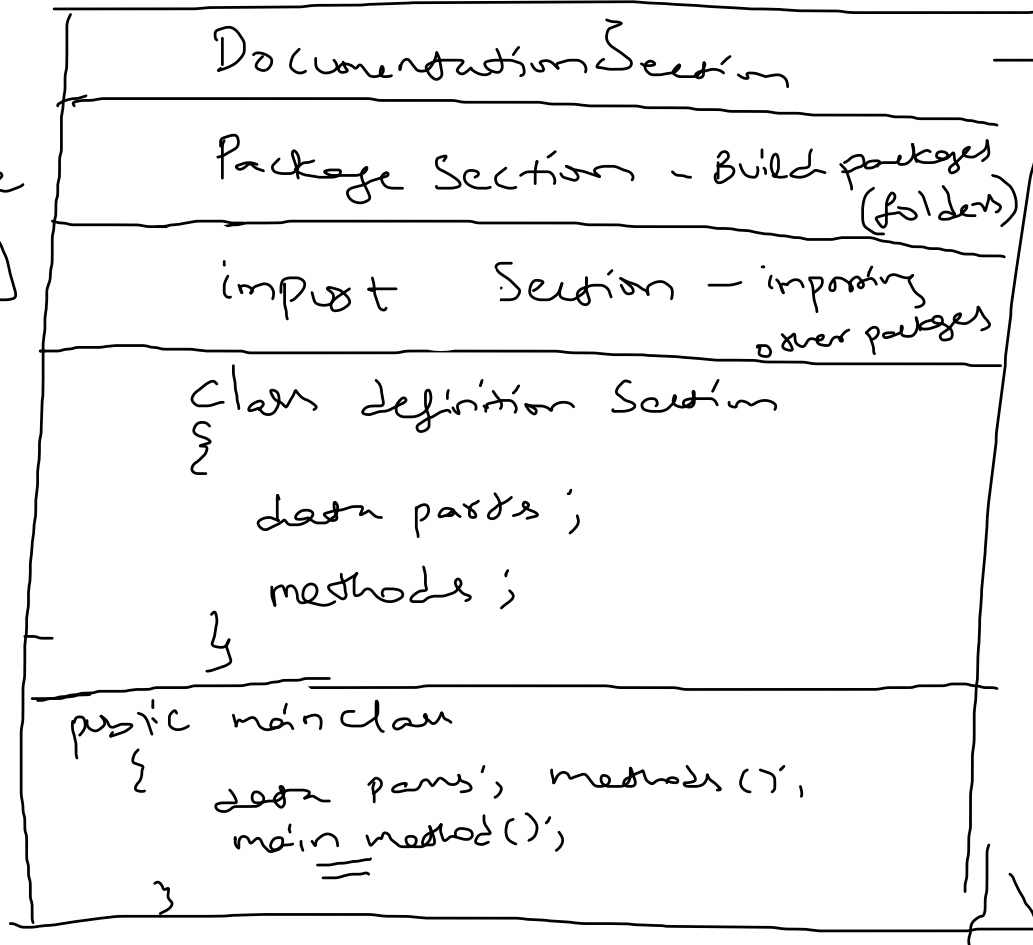 Documentation Section
Package Section - Build packages
(folders)
import Section - importing
other packages
Class definition Section
{
data parts ;
methods ;
}
public main class
{
data parts; methods();
main method();
}